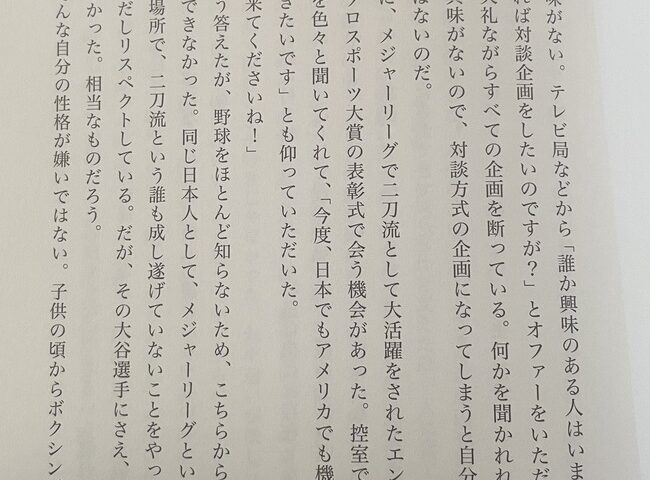 味がない。テレビ局などから「誰か興味のある人はいま
れば対談企画をしたいのですが？」とオファーをいただ
失礼ながらすべての企画を断っている。何かを聞かれれ
興味がないので、対談方式の企画になってしまうと自分
はないのだ。
に、メジャーリーグで二刀流として大活躍をされたエン
プロスポーツ大賞の表彰式で会う機会があった。控室で
を色々と聞いてくれて、「今度、日本でもアメリカでも機
きたいです」とも仰っていただいた。
来てくださいね！」
う答えたが、野球をほとんど知らないため、こちらから
できなかった。同じ日本人として、メジャーリーグとい
場所で、二刀流という誰も成し遂げていないことをやっ
だしリスペクトしている。だが、その大谷選手にさえ、
かった。相当なものだろう。
んな自分の性格が嫌いではない。子供の頃からボクシン